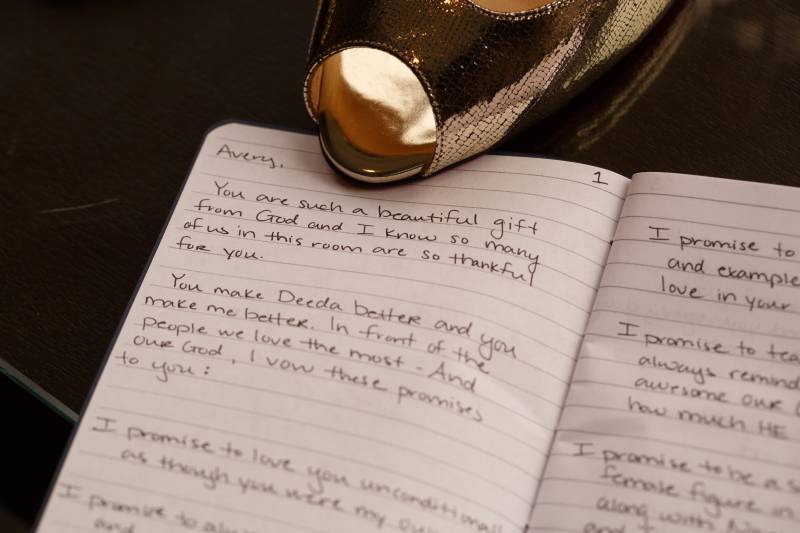 Avery,
1
You are such a beautiful gift
from God and I know so many
of us in this room are so thankful
for you.
You make Deeda better and you
make me better. In front of the
people we love the most - And
our God, I vow these promises
to you:
I promise to love you unconditionally
as though you were my own
I promise to
and
I promise to
and example
love in your
I promise to tea
always remind
awesome our
how much HE
I promise to be a s
female figure in
along with
and I